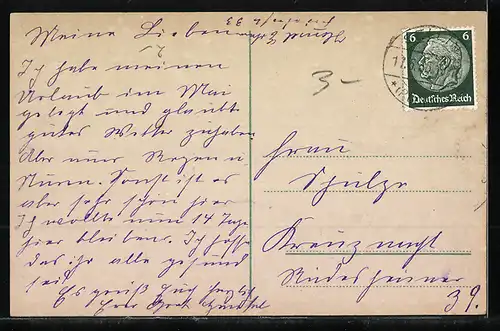 Meine Lieben
Ich habe meinen
Urlaub im Mai
gelegt und glaubte
gutes Wetter zu haben
Aber nur Regen u
Sturm. Sonst ist es
aber sehr schön hier
Ich wollte nun 14 Tage
hier bleiben. Ich hoffe
das ihr alle gesund
seid
Es grüß Euch herzlich
3-
6 6
Deutsches Reich
Frau
Schulze
Kreuznach
Rüdesheimer
39.